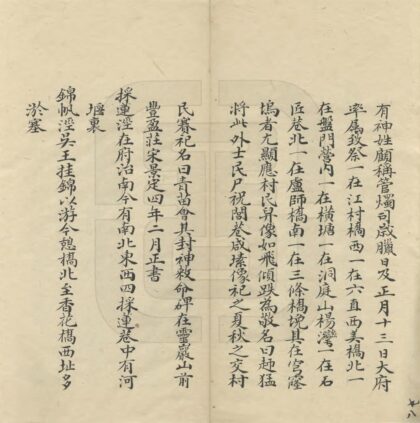 有神姓顧稱管燭司歲臘日及正月十三日大府
率属致祭一在江村橋西一在六直西美橋北一
在盤門營内一在横塘一在洞庭山楊灣一在石
匠巷北一在盧師橋南一在三條橋堍其在宫窿
塢者尤顯應村民舁像如飛傾跌為敬名曰趂猛
將此外士民尸祝閭巷咸塐像祀之夏秋之交村
民賽祀名曰青苗會其封神敕命碑在靈巖山前
豐盈莊宋景定四年二月正書
採蓮涇在府治南今有南北東西四採蓮巷中有河
堰裏
錦帆涇吳王挂錦以游今憩橋北至香花橋西址多
淤塞
九八